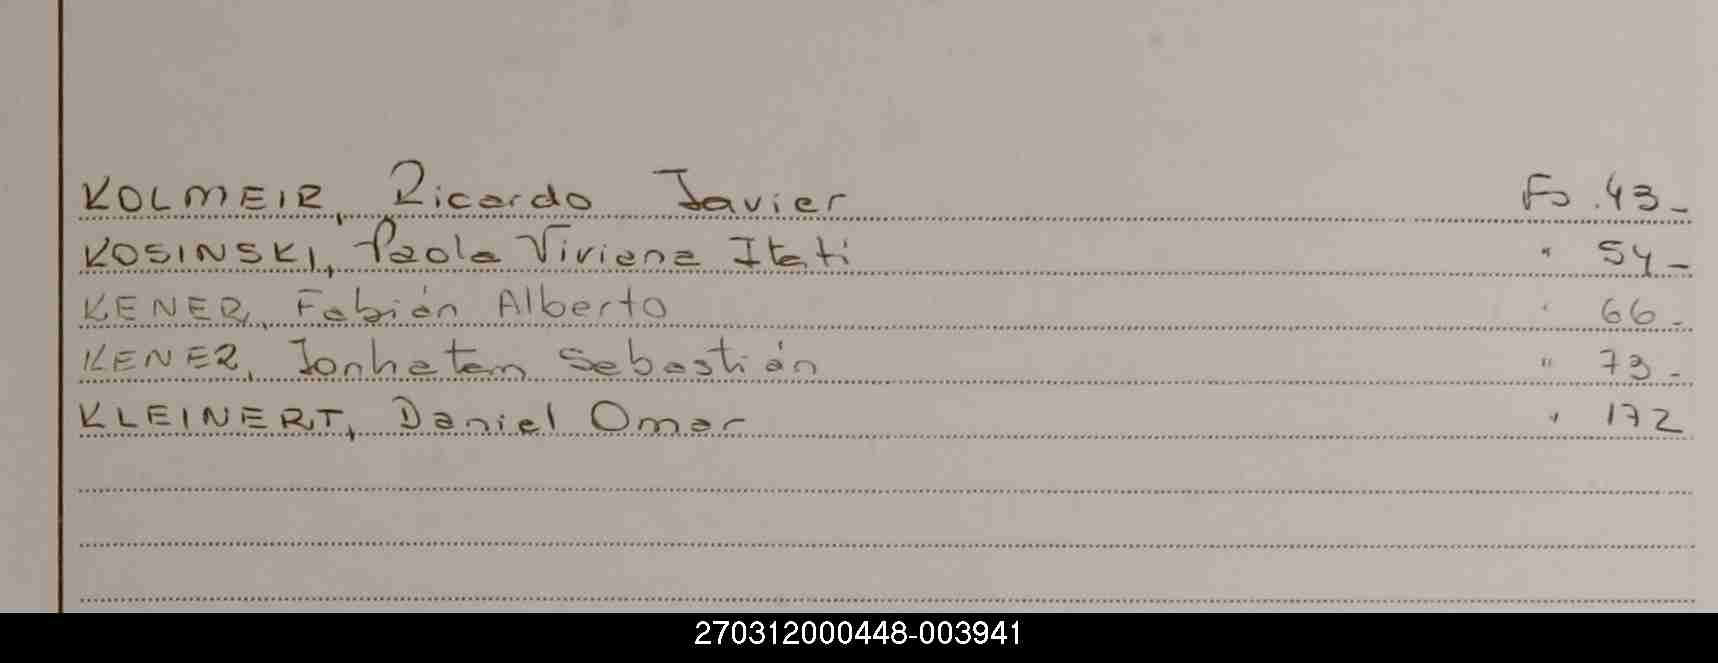 KOLMEIR, Ricardo Javier Fs .43_
KOSINSKI, Paola Viviana Itati " 54_
KENER, Fabián Alberto " 66_
KENER, Jonhatan Sebastián " 73_
KLEINERT, Daniel Omar " 172
270312000448-003941